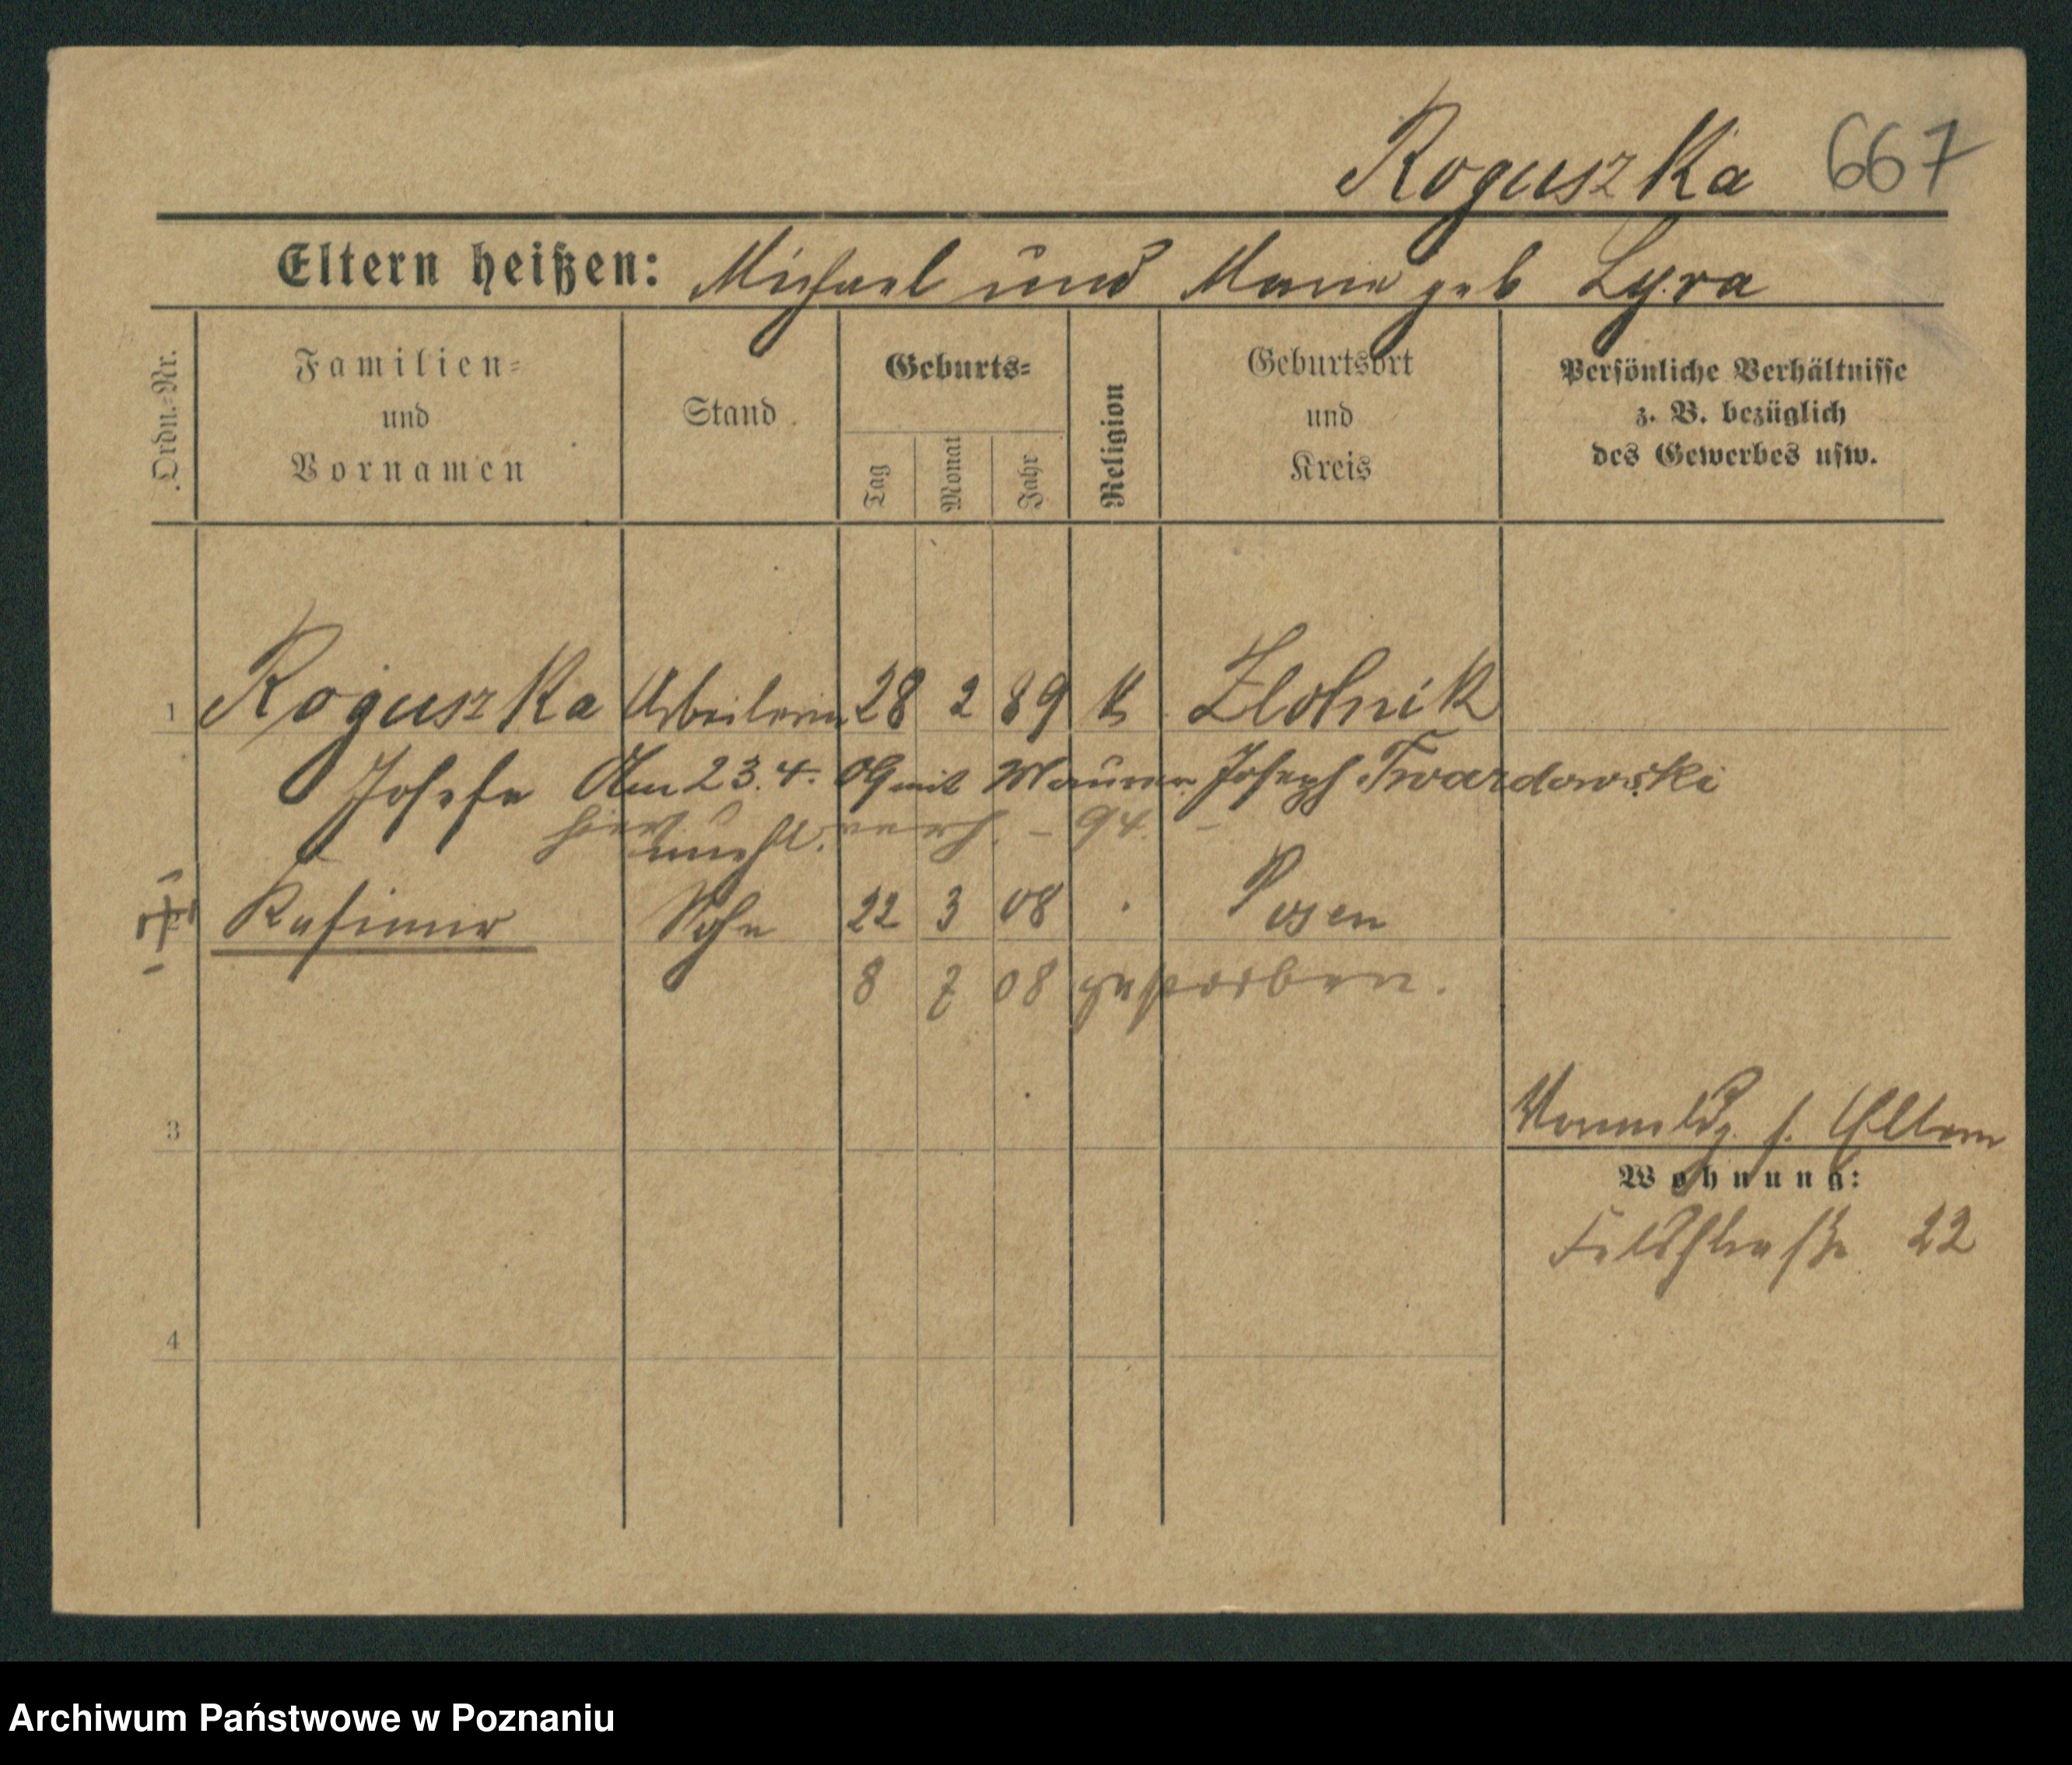 Roguszka 667
Eltern heißen: Michael und Marie geb Lyra
Ordn.-Nr.
Familien-
und
Vornamen
Stand
Geburts-
Tag
Monat
Jahr
Religion
Geburtsort
und
Kreis
Persönliche Verhältnisse
z. B. bezüglich
des Gewerbes usw.
1 Roguszka Arbeiterin 28 2 89 k Zlotnik
Josefe Am 23.4.09 mit Maurer Joseph Twardowski
hier verh. - 94. -
unehl.
Kasimir Sohn 22 3 08 Posen
8 7 08 gestorben.
3
Anmeldg. s. Eltern
Wohnung:
Feldstraße 22
4
Archiwum Państwowe w Poznaniu